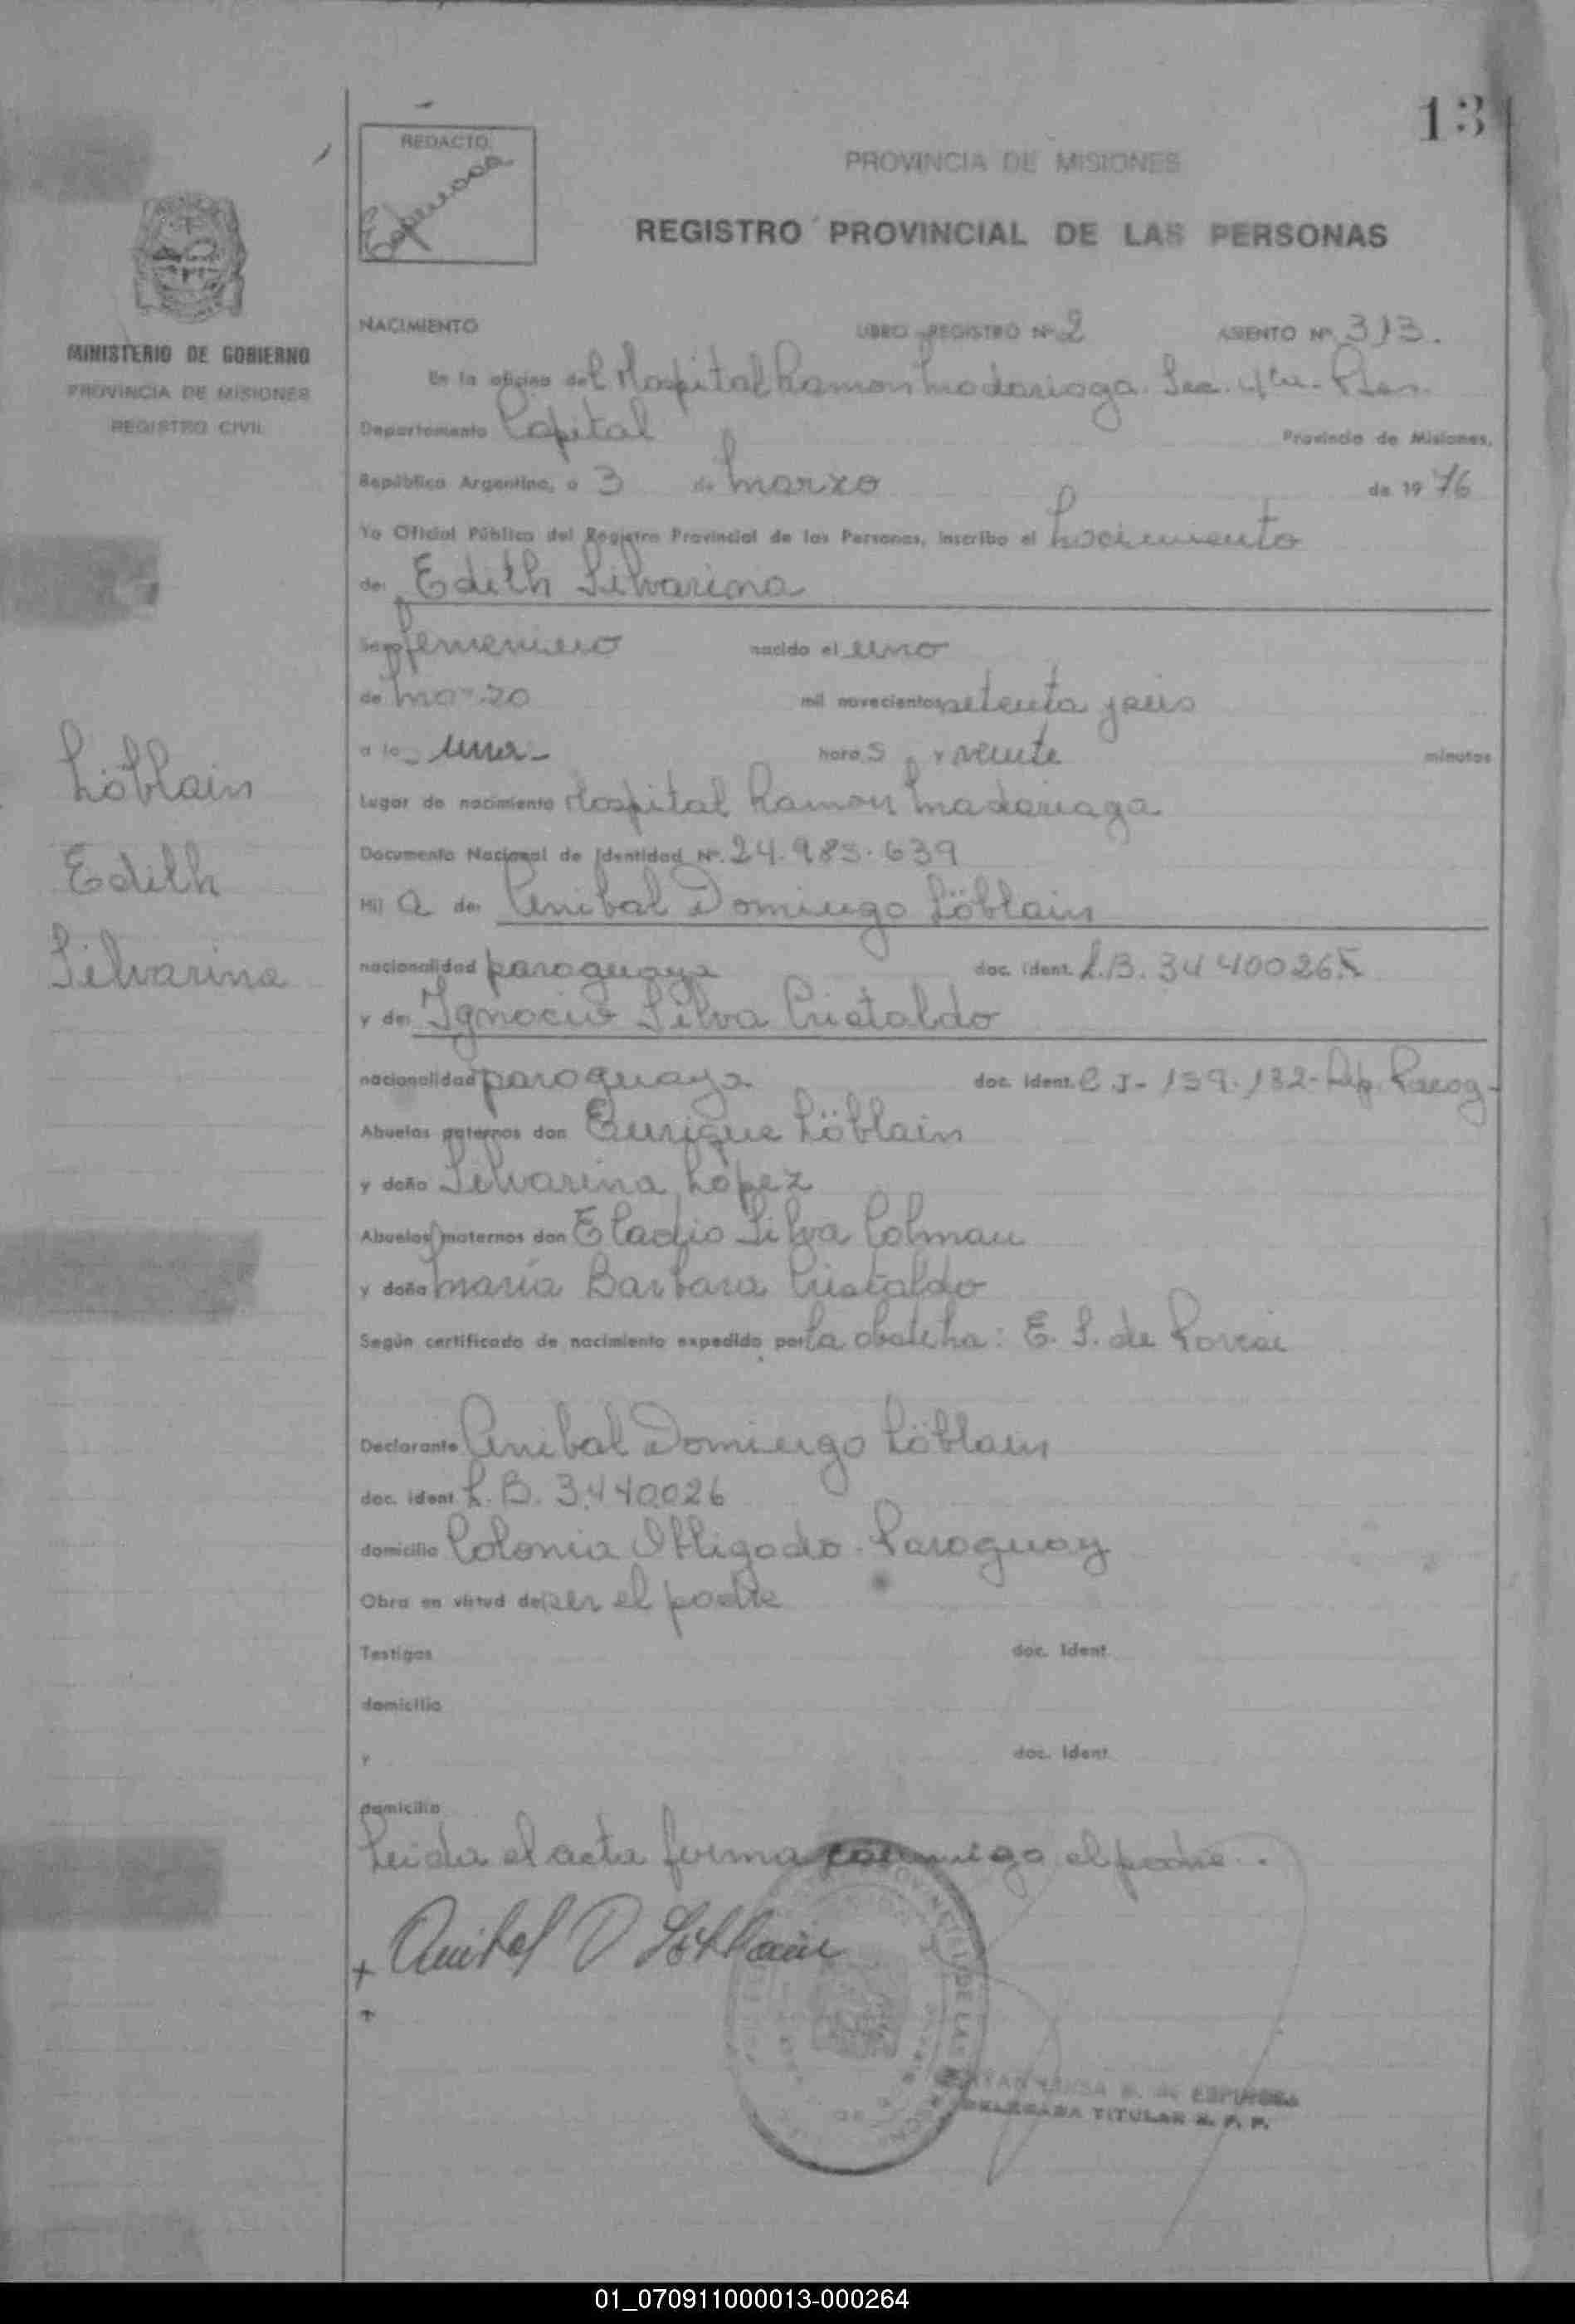 13
REDACTO
Espinosa
PROVINCIA DE MISIONES
REGISTRO PROVINCIAL DE LAS PERSONAS
MINISTERIO DE GOBIERNO
PROVINCIA DE MISIONES
REGISTRO CIVIL
NACIMIENTO LIBRO REGISTRO Nº 2 ASIENTO Nº 313.
En la oficina del Hospital Ramon Madariaga. Sec. 4ta. Pdas.
Departamento Capital Provincia de Misiones,
República Argentina, a 3 de Marzo de 1976
Yo Oficial Público del Registro Provincial de las Personas, inscribo el Nacimiento
de: Edith Silvarina
Sexo femenino nacido el uno
de Marzo mil novecientos setenta y seis
a la una- hora s y veinte minutos
Lugar de nacimiento Hospital Ramon Madariaga
Documento Nacional de Identidad Nº. 24.983.639
Hij a de: Anibal Domingo Löblain
nacionalidad paraguaya doc. ident. L.B. 3440026
y de: Ignacia Silva Cristaldo
nacionalidad paraguaya doc. ident. C.I- 139.132- Rep. Parag-
Abuelos paternos don Enrique Löblain
y doña Silvarina López
Abuelos maternos don Eladio Silva Colman
y doña María Barbara Cristaldo
Según certificado de nacimiento expedido por La obstetra: E. S. de
Declarante Anibal Domingo Löblain
doc. ident L. B. 3.440026
domicilio Colonia Obligado- Paraguay
Obra en virtud de ser el padre
Testigos doc. Ident.
domicilio
y doc. Ident.
domicilio
Leida el acta firma conmigo el padre.
Anibal D Löblain
LUISA B. de ESPINOSA
DELEGADA TITULAR R. P. P.
Löblain
Edith
Silvarina
01_070911000013-000264